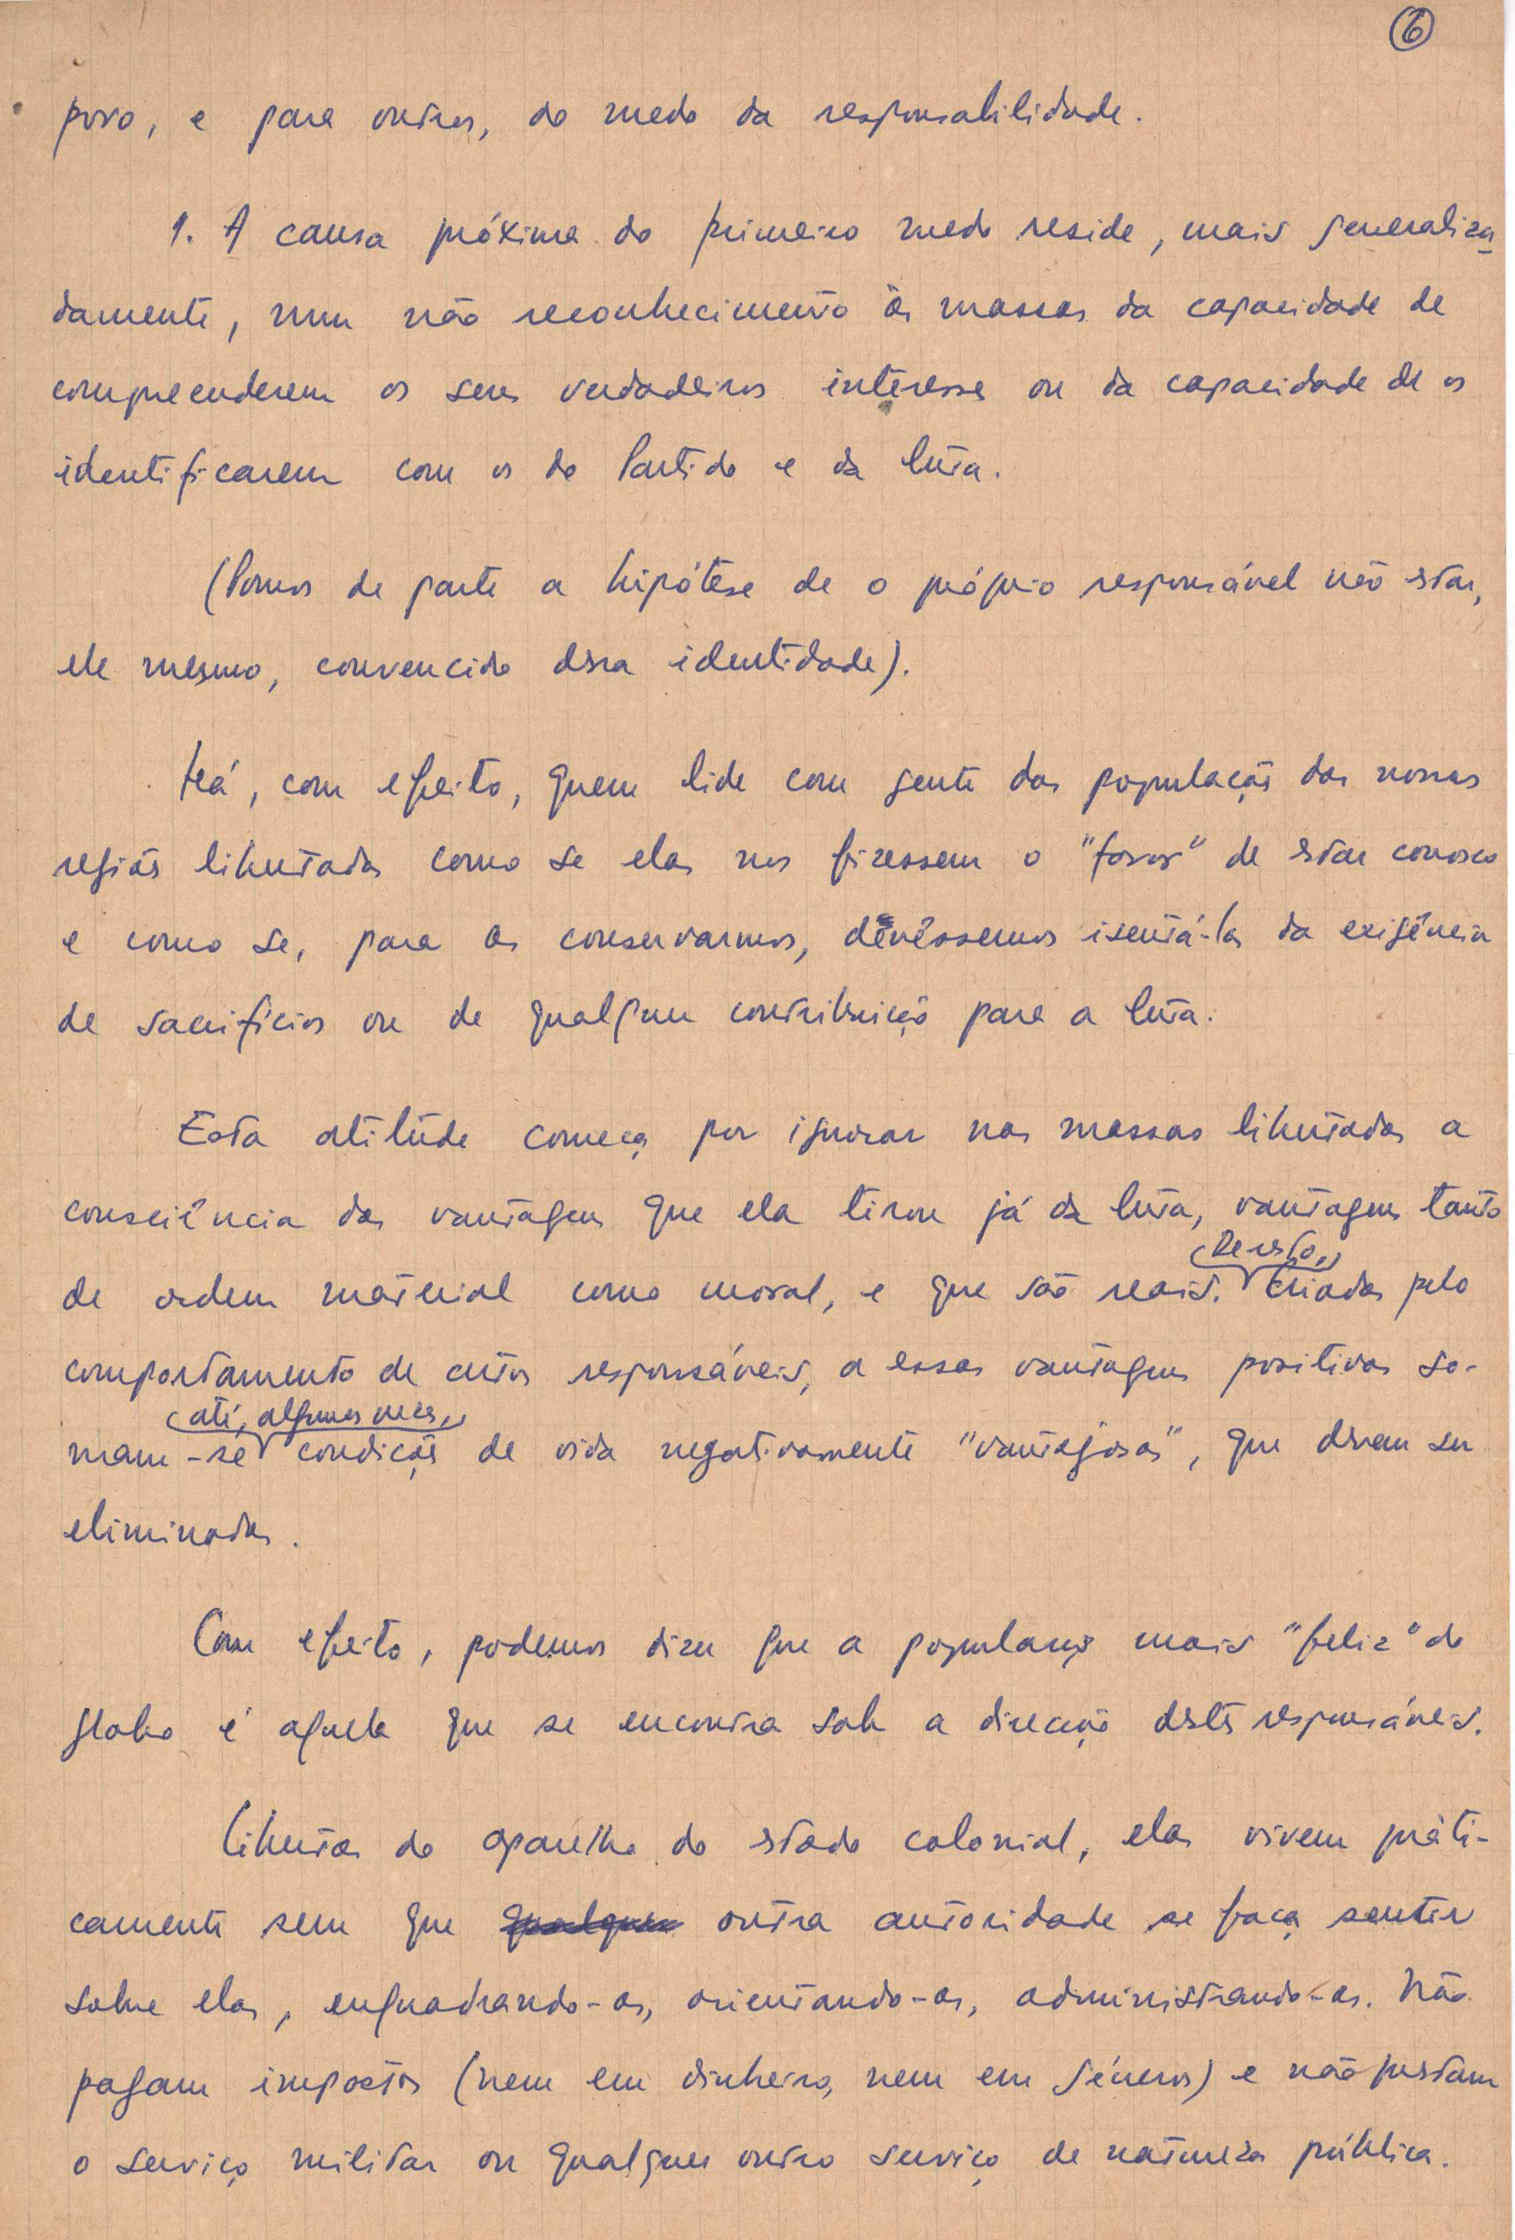 6
povo, e para outros, do medo da responsabilidade.
1. A causa próxima do primeiro medo reside, mais generaliza
damente, num não reconhecimento às massas da capacidade de
compreenderem os seus verdadeiros interesses ou da capacidade de os
identificarem com os do Partido e da luta.
(Pomos de parte a hipótese de o próprio responsável não estar,
ele mesmo, convencido dessa identidade).
Há, com efeito, quem lide com gente das populações das nossas
regiões libertadas como se elas nos fizessem o "favor" de estar conosco
e como se, para as conservarmos, devêssemos isentá-las da exigência
de sacrifícios ou de qualquer contribuição para a luta.
Esta atitude começa por ignorar nas massas libertadas a
consciência das vantagens que ela tirou já da luta, vantagens tanto
(De resto,)
de ordem material como moral, e que são reais. Criadas pelo
comportamento de certos responsáveis, a essas vantagens positivas so-
(até, algumas vezes,)
mam-se condições de vida negativamente "vantajosas", que devem ser
eliminadas.
Com efeito, podemos dizer que a população mais "feliz" do
globo é aquela que se encontra sob a direcção destes responsáveis.
Libertas do aparelho do estado colonial, elas vivem práti-
camente sem que qualquer outra autoridade se faça sentir
sobre elas, enquadrando-as, orientando-as, administrando-as. Não
pagam impostos (nem em dinheiro, nem em géneros) e não prestam
o serviço militar ou qualquer outro serviço de natureza pública.